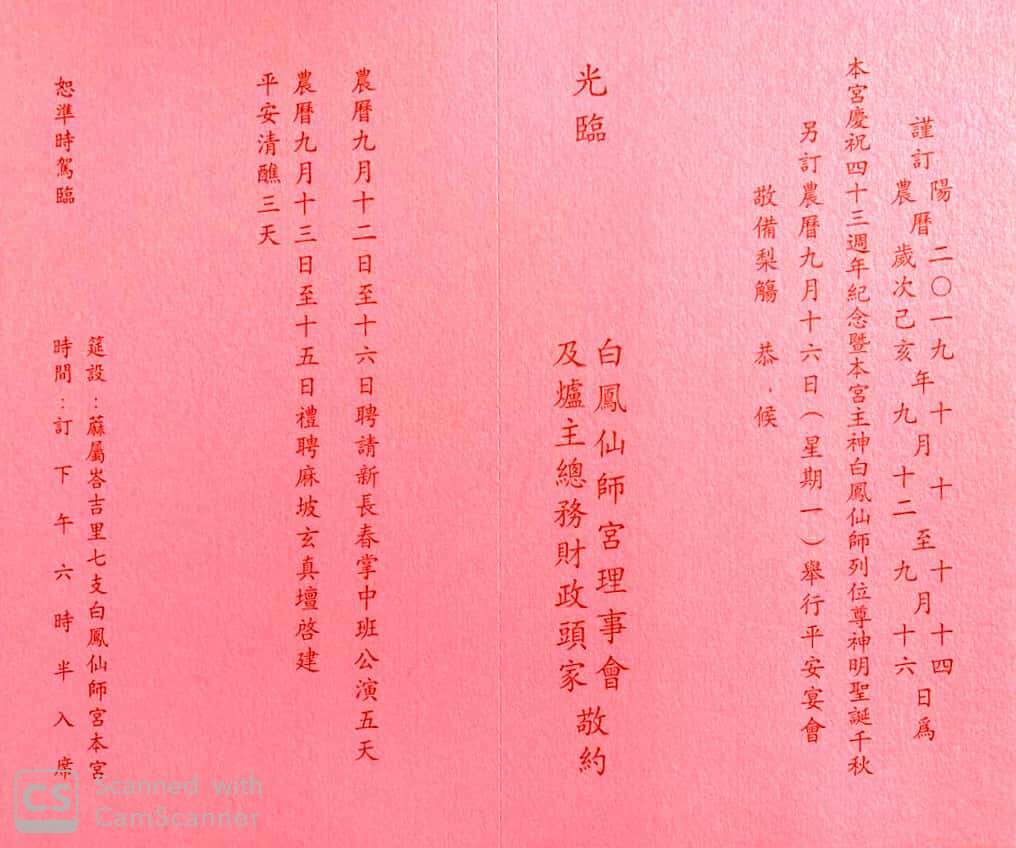 謹訂
陽曆二〇一九年十月十至十月十四日爲
農曆歲次己亥年九月十二至九月十六日爲
本宮慶祝四十三週年紀念暨本宮主神白鳳仙師列位尊神明聖誕千秋
另訂農曆九月十六日(星期一)舉行平安宴會
敬備梨觴 恭候
光臨
白鳳仙師宮理事會
及爐主總務財政頭家
敬約
農曆九月十二日至十六日聘請新長春掌中班公演五天
農曆九月十三日至十五日禮聘麻坡玄真壇啓建
平安清醮三天
恕準時駕臨
筵設:蔴屬峇吉里七支白鳳仙師宮本宮
時間:訂下午六時半入席
CS Scanned with
CamScanner